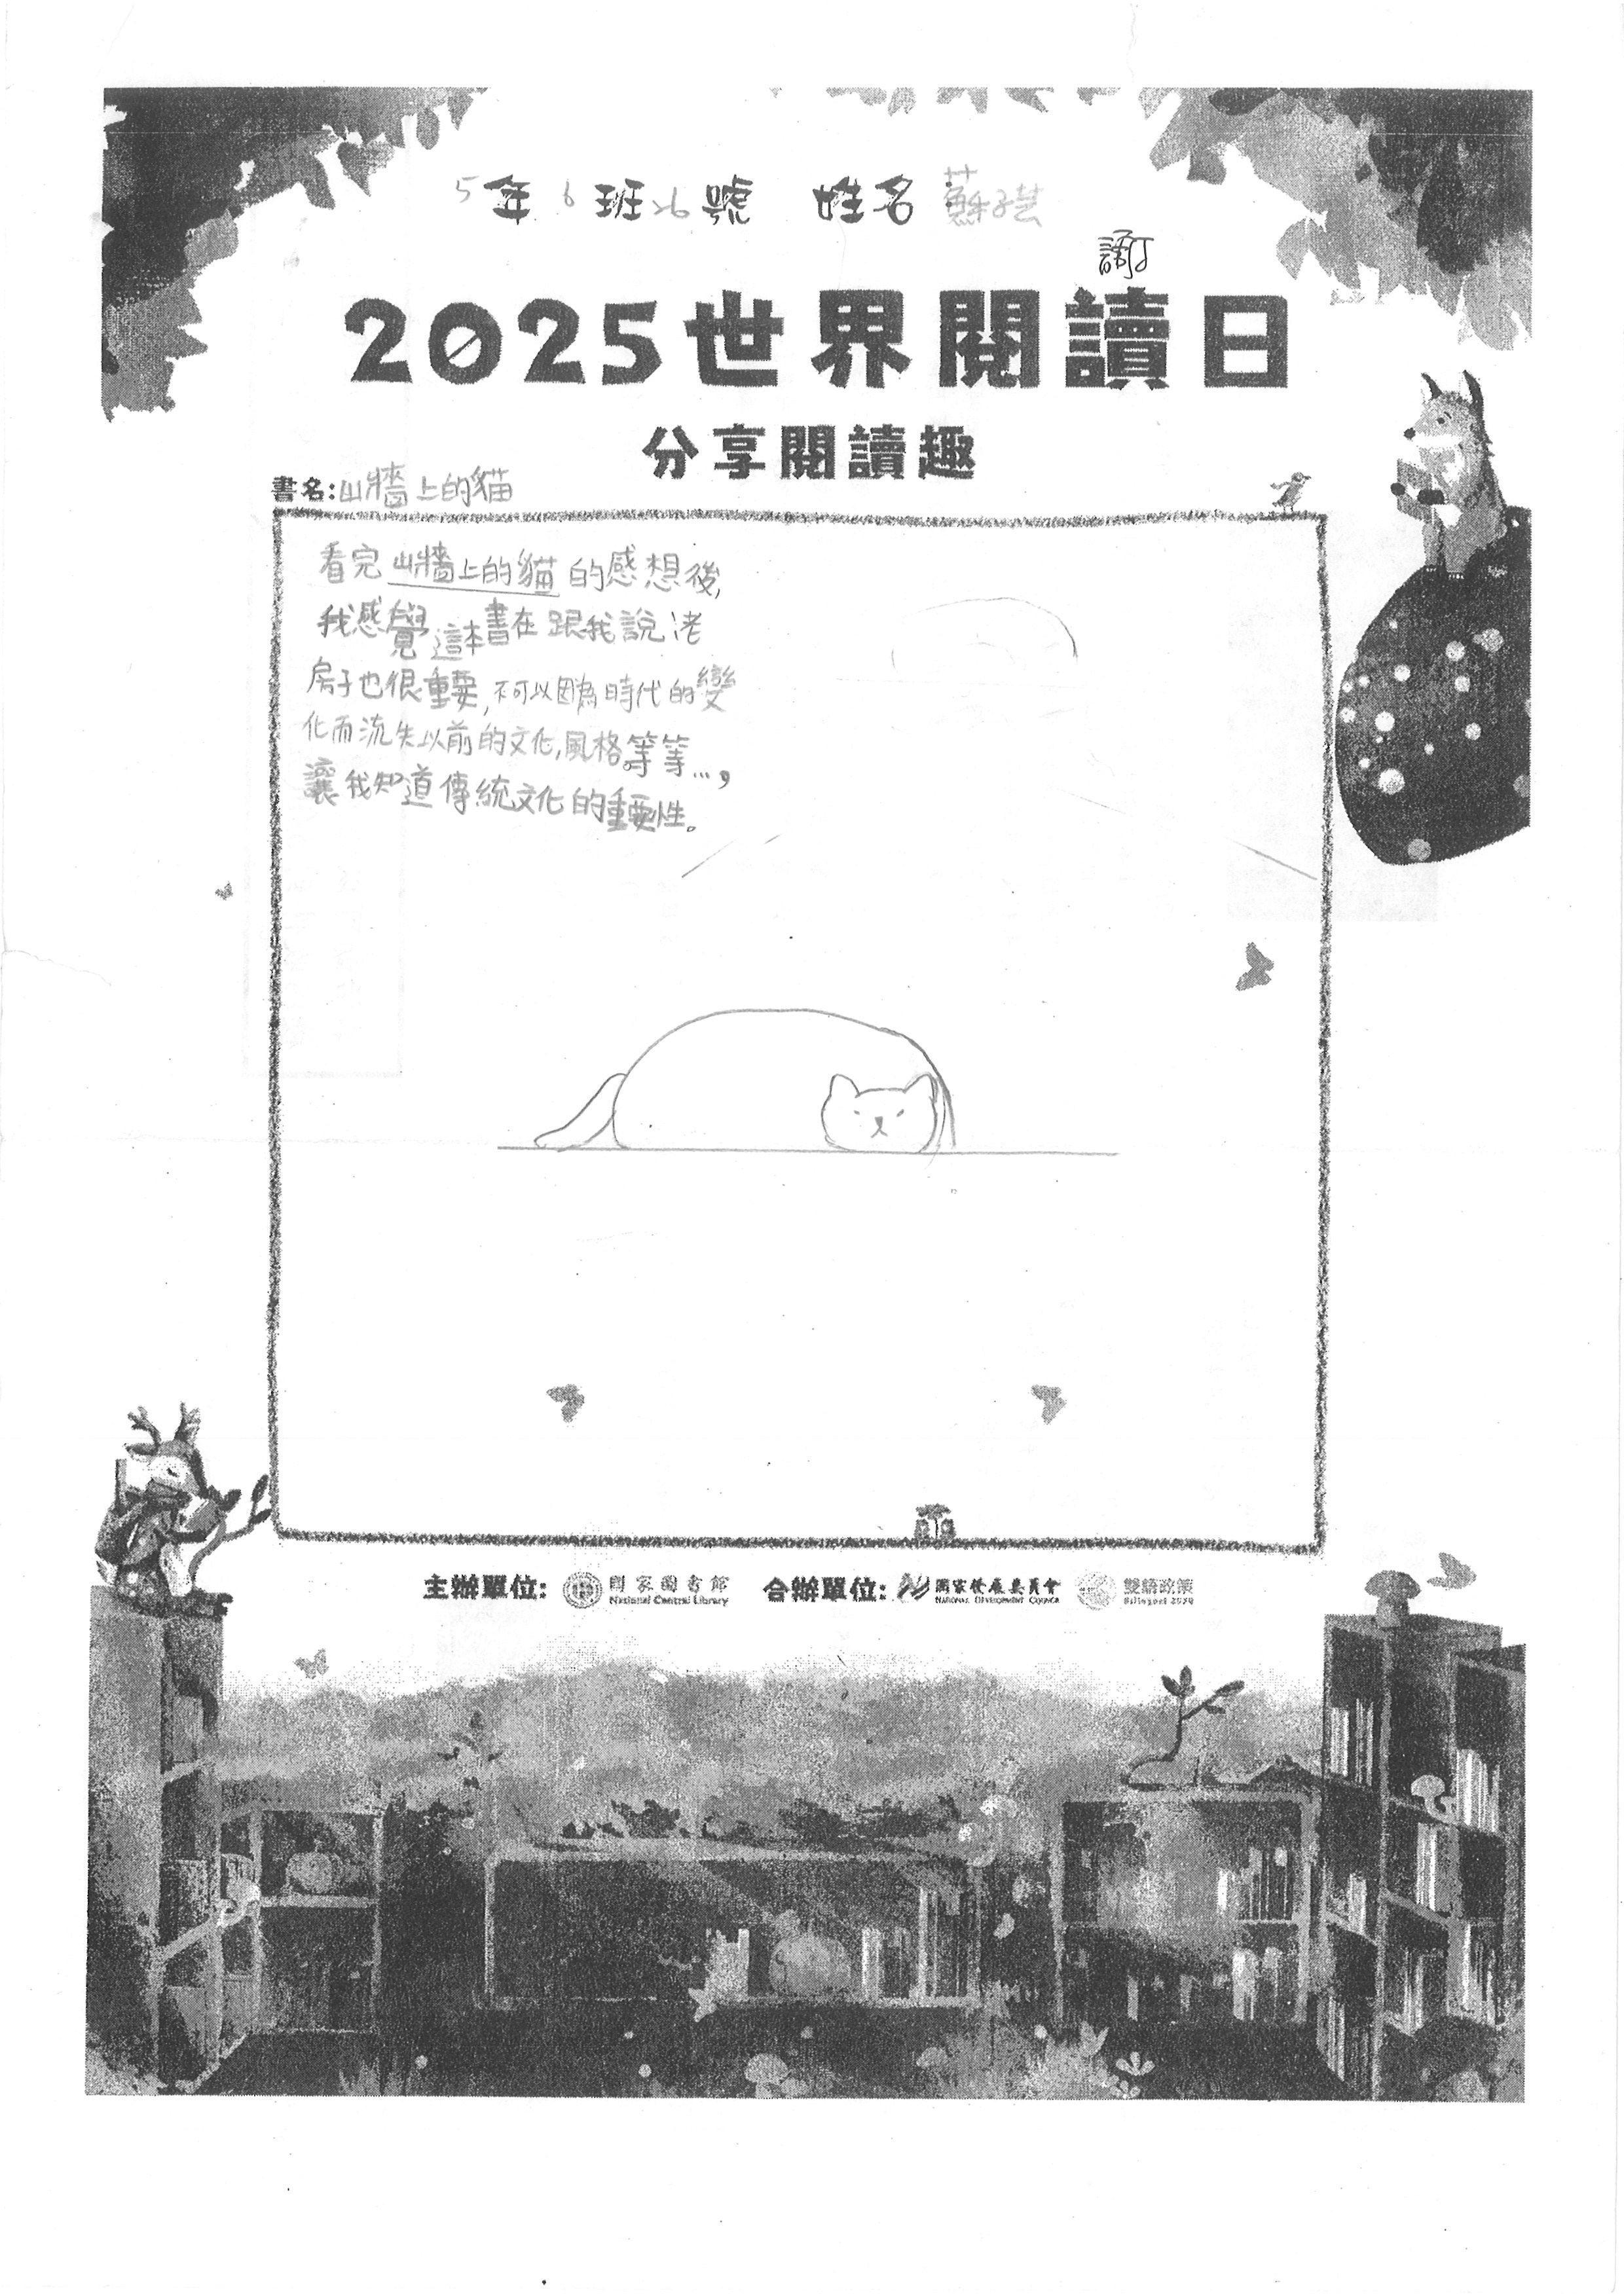 5年6班26號 姓名 蘇子芸
謝
2025世界閱讀日
分享閱讀趣
書名:山牆上的貓
看完山牆上的貓的感想後,
我感覺這本書在跟我說老
房子也很重要,不可以因為時代的變
化而流失以前的文化,風格等等...,
讓我知道傳統文化的重要性。
主辦單位: 國家圖書館 National Central Library 合辦單位: 國家發展委員會 NATIONAL DEVELOPMENT COUNCIL 雙語政策 Bilingual 2030